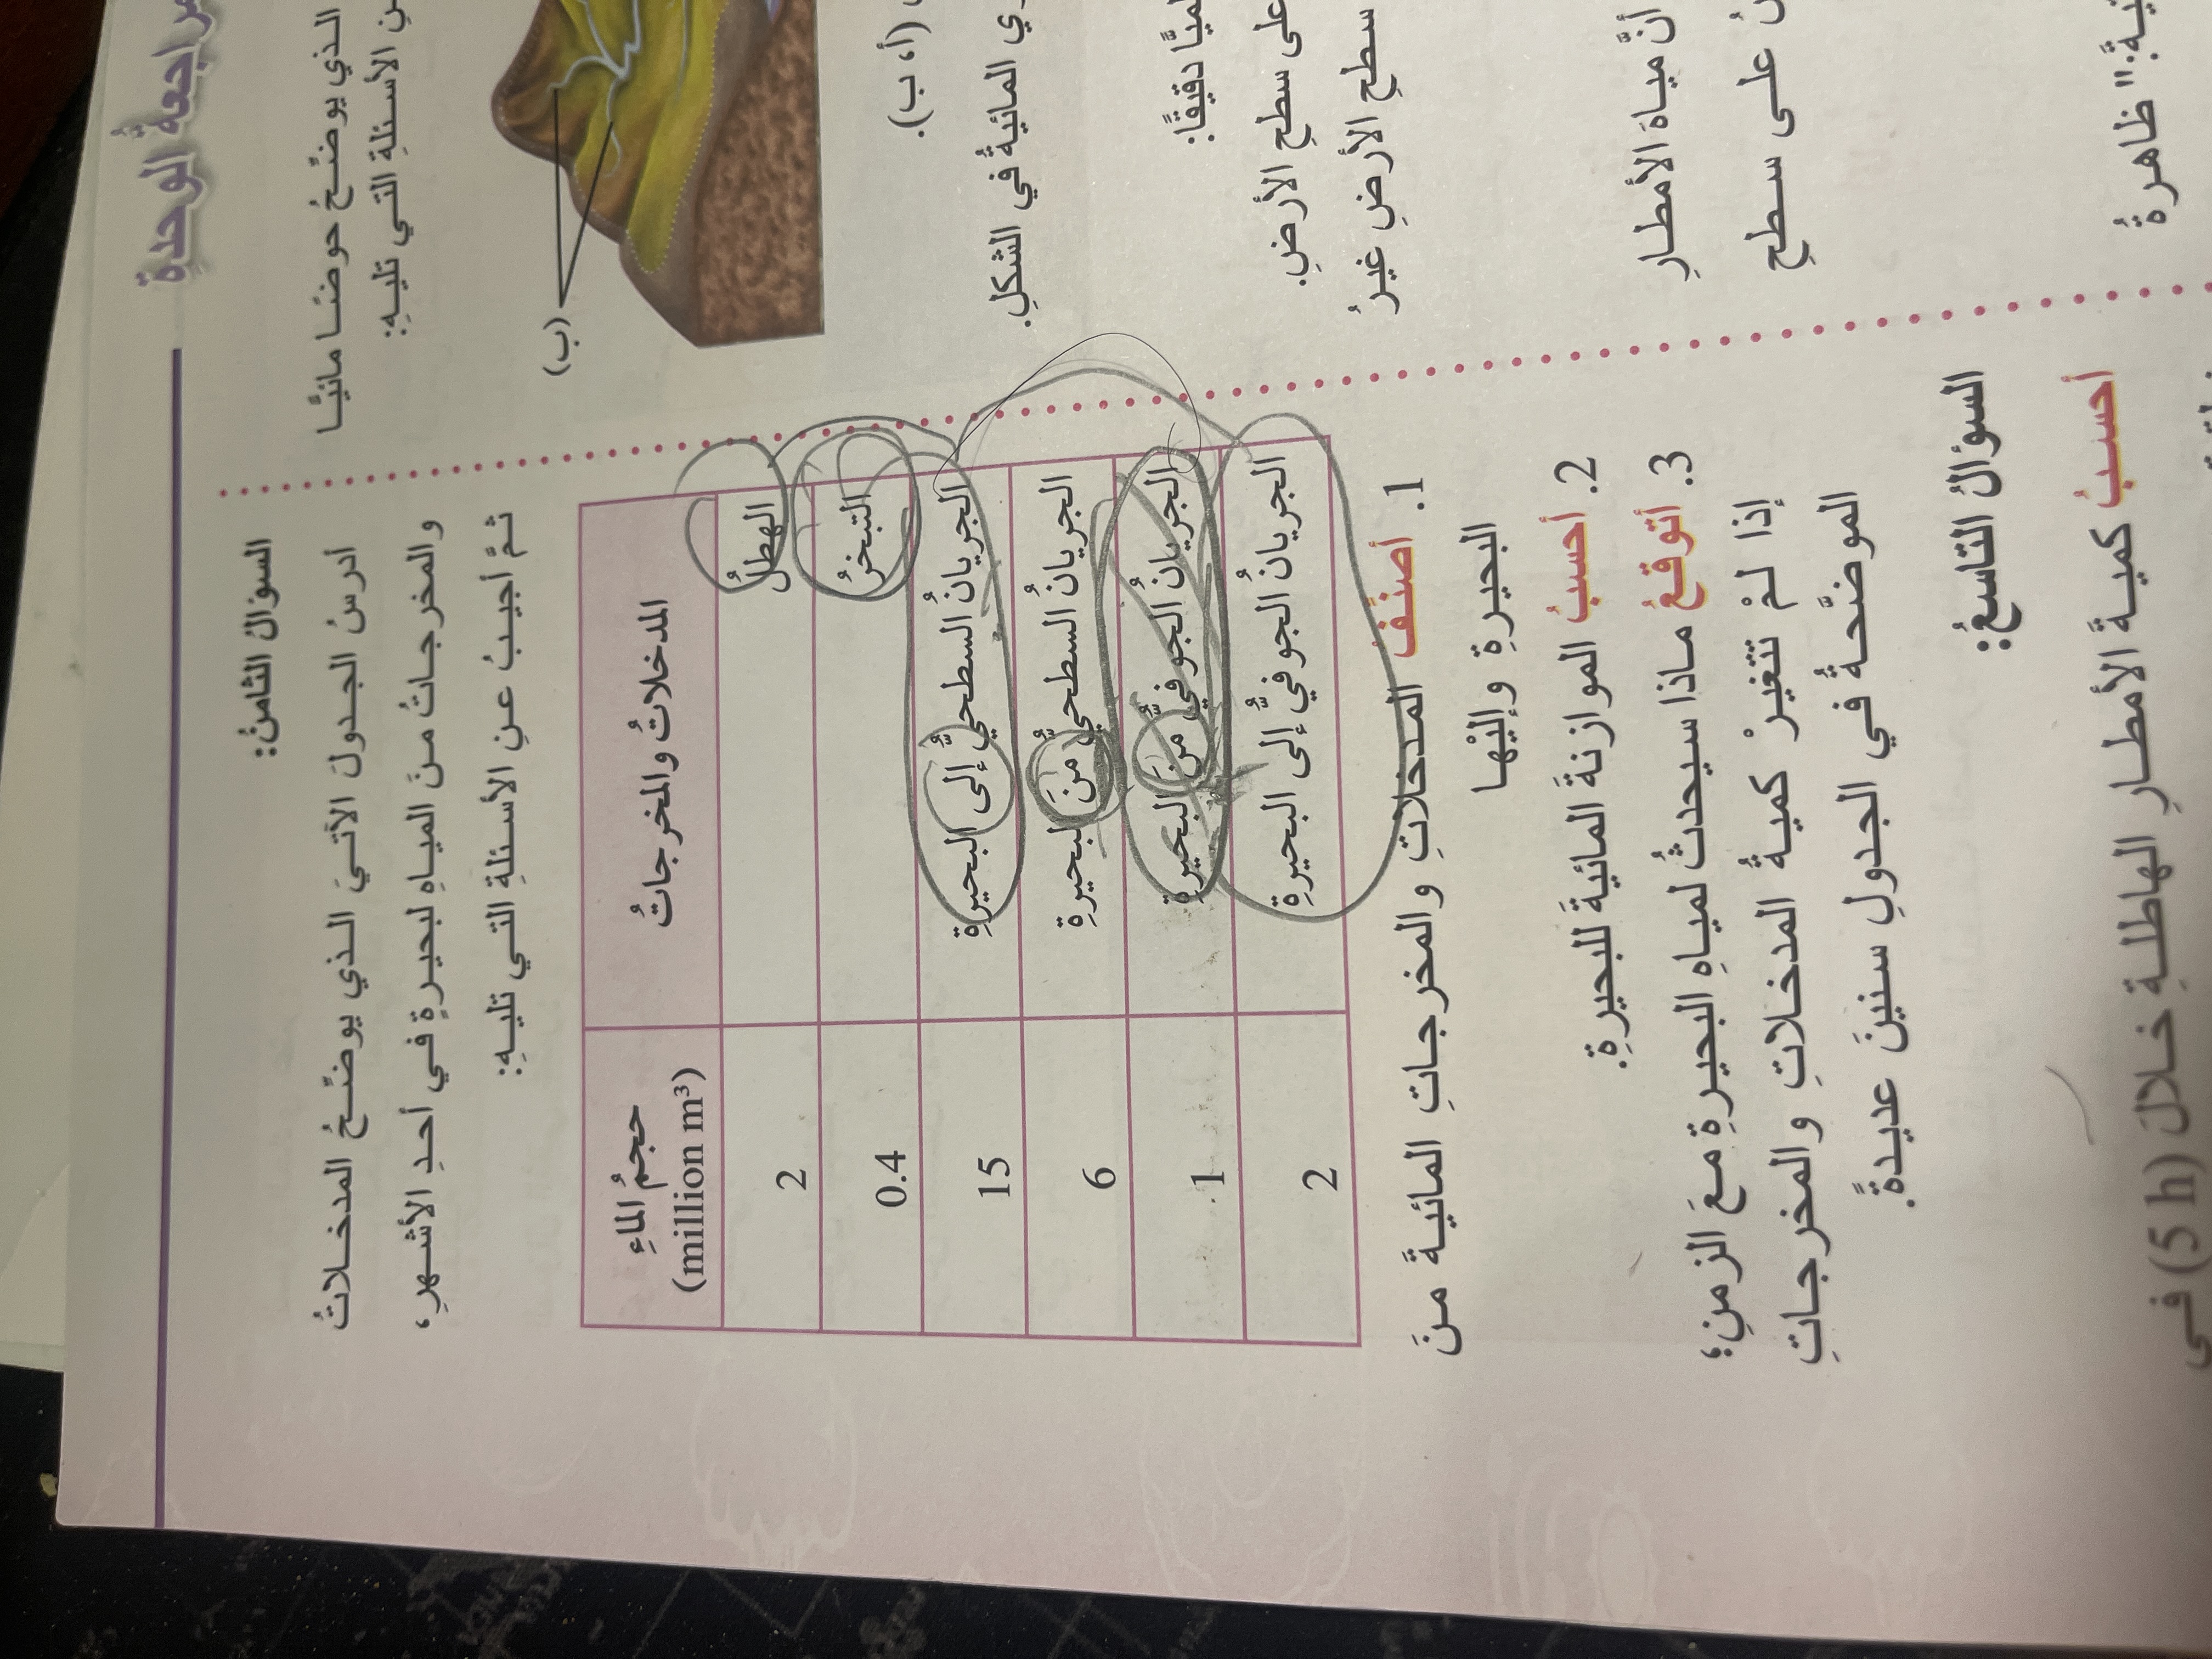 مراجعةُ الوحدةِ
الذي يوضّحُ حوضًا مائيًّا
الأسئلةِ التي تليهِ:
(ب)
(أ، ب).
المائيةُ في الشكلِ.
دقيقًا:
على سطحِ الأرضِ.
سطحِ الأرضِ غيرُ
أنَّ مياهَ الأمطارِ
على سطحِ
ظاهرةُ
السؤالُ الثامنُ:
أدرسُ الجدولَ الآتيَ الذي يوضّحُ المدخلاتُ
والمخرجاتُ منَ المياهِ لبحيرةٍ في أحدِ الأشهرِ،
ثمَّ أجيبُ عنِ الأسئلةِ التي تليهِ:
المدخلاتُ والمخرجاتُ
حجمُ الماءِ
(million m³)
الهطلُ 2
التبخرُ 0.4
الجريانُ السطحيُّ إلى البحيرةِ 15
الجريانُ السطحيُّ منَ البحيرةِ 6
الجريانُ الجوفيُّ منَ البحيرةِ 1
الجريانُ الجوفيُّ إلى البحيرةِ 2
1. أصنّفُ المدخلاتِ والمخرجاتِ المائيةَ منَ
البحيرةِ وإليْها
2. أحسبُ الموازنةَ المائيةَ للبحيرةِ.
3. أتوقعُ ماذا سيحدثُ لمياهِ البحيرةِ معَ الزمنِ؛
إذا لمْ تتغيرْ كميةُ المدخلاتِ والمخرجاتِ
الموضَّحةُ في الجدولِ سنينَ عديدةً.
السؤالُ التاسعُ:
أحسبُ كميةَ الأمطارِ الهاطلةِ خلالَ (5 h) في